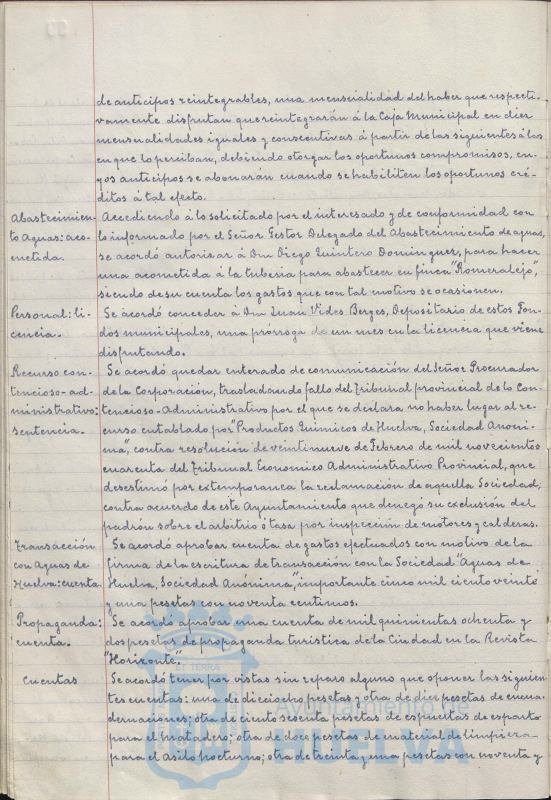 de anticipos reintegrables, una mensualidad del haber que respecti-
vamente disfrutan que reintegrarán á la Caja Municipal en diez
mensualidades iguales y consecutivas á partir de las siguientes á los
en que lo perciban, debiendo otorgar los oportunos compromisos, cu-
yos anticipos se abonarán cuando se habiliten los oportunos cré-
ditos á tal efecto.
Abastecimien-
to Aguas: aco-
metida.
Accediendo á lo solicitado por el interesado y de conformidad con
lo informado por el Señor Gestor Delegado del Abastecimiento de aguas,
se acordó autorizar á Don Diego Quintero Dominguez, para hacer
una acometida á la tuberia para abastecer su finca "Romeralejo",
siendo de su cuenta los gastos que con tal motivo se ocasionen.
Personal: li-
cencia.
Se acordó conceder á Don Juan Vides Berges, Depositario de estos Fon-
dos municipales, una prórroga de un mes en la licencia que viene
disfrutando.
Recurso con-
tencioso-ad-
ministrativo:
sentencia.
Se acordó quedar enterado de comunicación del Señor Procurador
de la Corporación, trasladando fallo del Tribunal provincial de lo Con-
tencioso-Administrativo por el que se declara no haber lugar al re-
curso entablado por "Productos Quimicos de Huelva, Sociedad Anóni-
ma", contra resolución de veintinueve de Febrero de mil novecientos
cuarenta del Tribunal Economico Administrativo Provincial, que
desestimó por extemporanea la reclamación de aquella Sociedad,
contra acuerdo de este Ayuntamiento que denegó su exclusión del
padrón sobre el arbitrio ó tasa por inspección de motores y calderas.
Transacción
con Aguas de
Huelva: cuenta
Se acordó aprobar cuenta de gastos efectuados con motivo de la
firma de la escritura de transacción con la Sociedad "Aguas de
Huelva, Sociedad Anónima", importante cinco mil ciento veinte
y una pesetas con noventa centimos.
Propaganda:
cuenta.
Se acordó aprobar una cuenta de mil quinientas ochenta y
dos pesetas de propaganda turistica de la Ciudad en la Revista
"Horizonte".
Cuentas
Se acordó tener por vistas sin reparo alguno que oponer las siguien-
tes cuentas: una de dieciocho pesetas y otra de diez pesetas de encua-
dernaciones; otra de ciento sesenta pesetas de espuertas de esparto
para el Matadero; otra de doce pesetas de material de limpieza
para el Asilo nocturno; otra de treinta y una pesetas con noventa y
ET TERRÆ
Ayuntamiento de
HUELVA